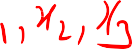 1, x2, x3